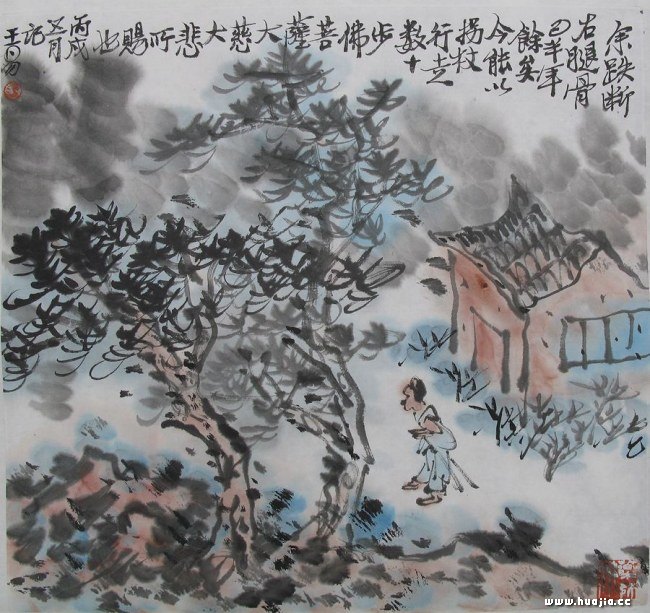 余跌断
右腿骨
已半年
餘矣
今能以
拐杖
行走
数十
步佛菩薩大慈大悲所賜也
丙戌
五月
记
www.huajia.cc